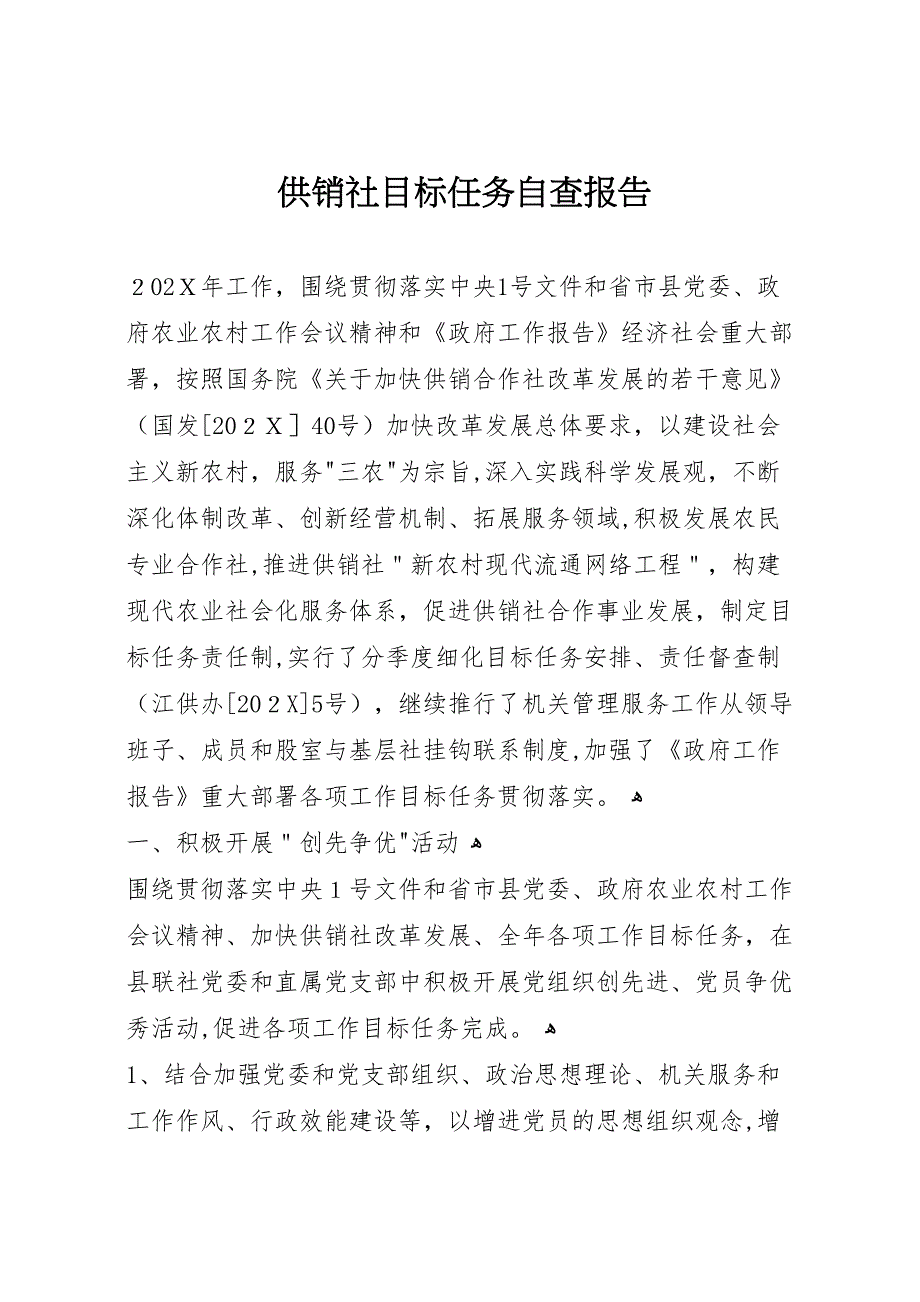 供销社目标任务自查报告
２02Ｘ年工作，围绕贯彻落实中央1号文件和省市县党委、政
府农业农村工作会议精神和《政府工作报告》经济社会重大部
署，按照国务院《关于加快供销合作社改革发展的若干意见》
（国发[20２Ｘ］40号）加快改革发展总体要求，以建设社会
主义新农村，服务"三农"为宗旨,深入实践科学发展观，不断
深化体制改革、创新经营机制、拓展服务领域,积极发展农民
专业合作社,推进供销社＂新农村现代流通网络工程＂，构建
现代农业社会化服务体系，促进供销社合作事业发展，制定目
标任务责任制,实行了分季度细化目标任务安排、责任督查制
（江供办[20２X]5号），继续推行了机关管理服务工作从领导
班子、成员和股室与基层社挂钩联系制度,加强了《政府工作
报告》重大部署各项工作目标任务贯彻落实。ﻫ
一、积极开展＂创先争优"活动ﻫ
围绕贯彻落实中央１号文件和省市县党委、政府农业农村工作
会议精神、加快供销社改革发展、全年各项工作目标任务，在
县联社党委和直属党支部中积极开展党组织创先进、党员争优
秀活动,促进各项工作目标任务完成。ﻫ
1、结合加强党委和党支部组织、政治思想理论、机关服务和
工作作风、行政效能建设等，以增进党员的思想组织观念,增